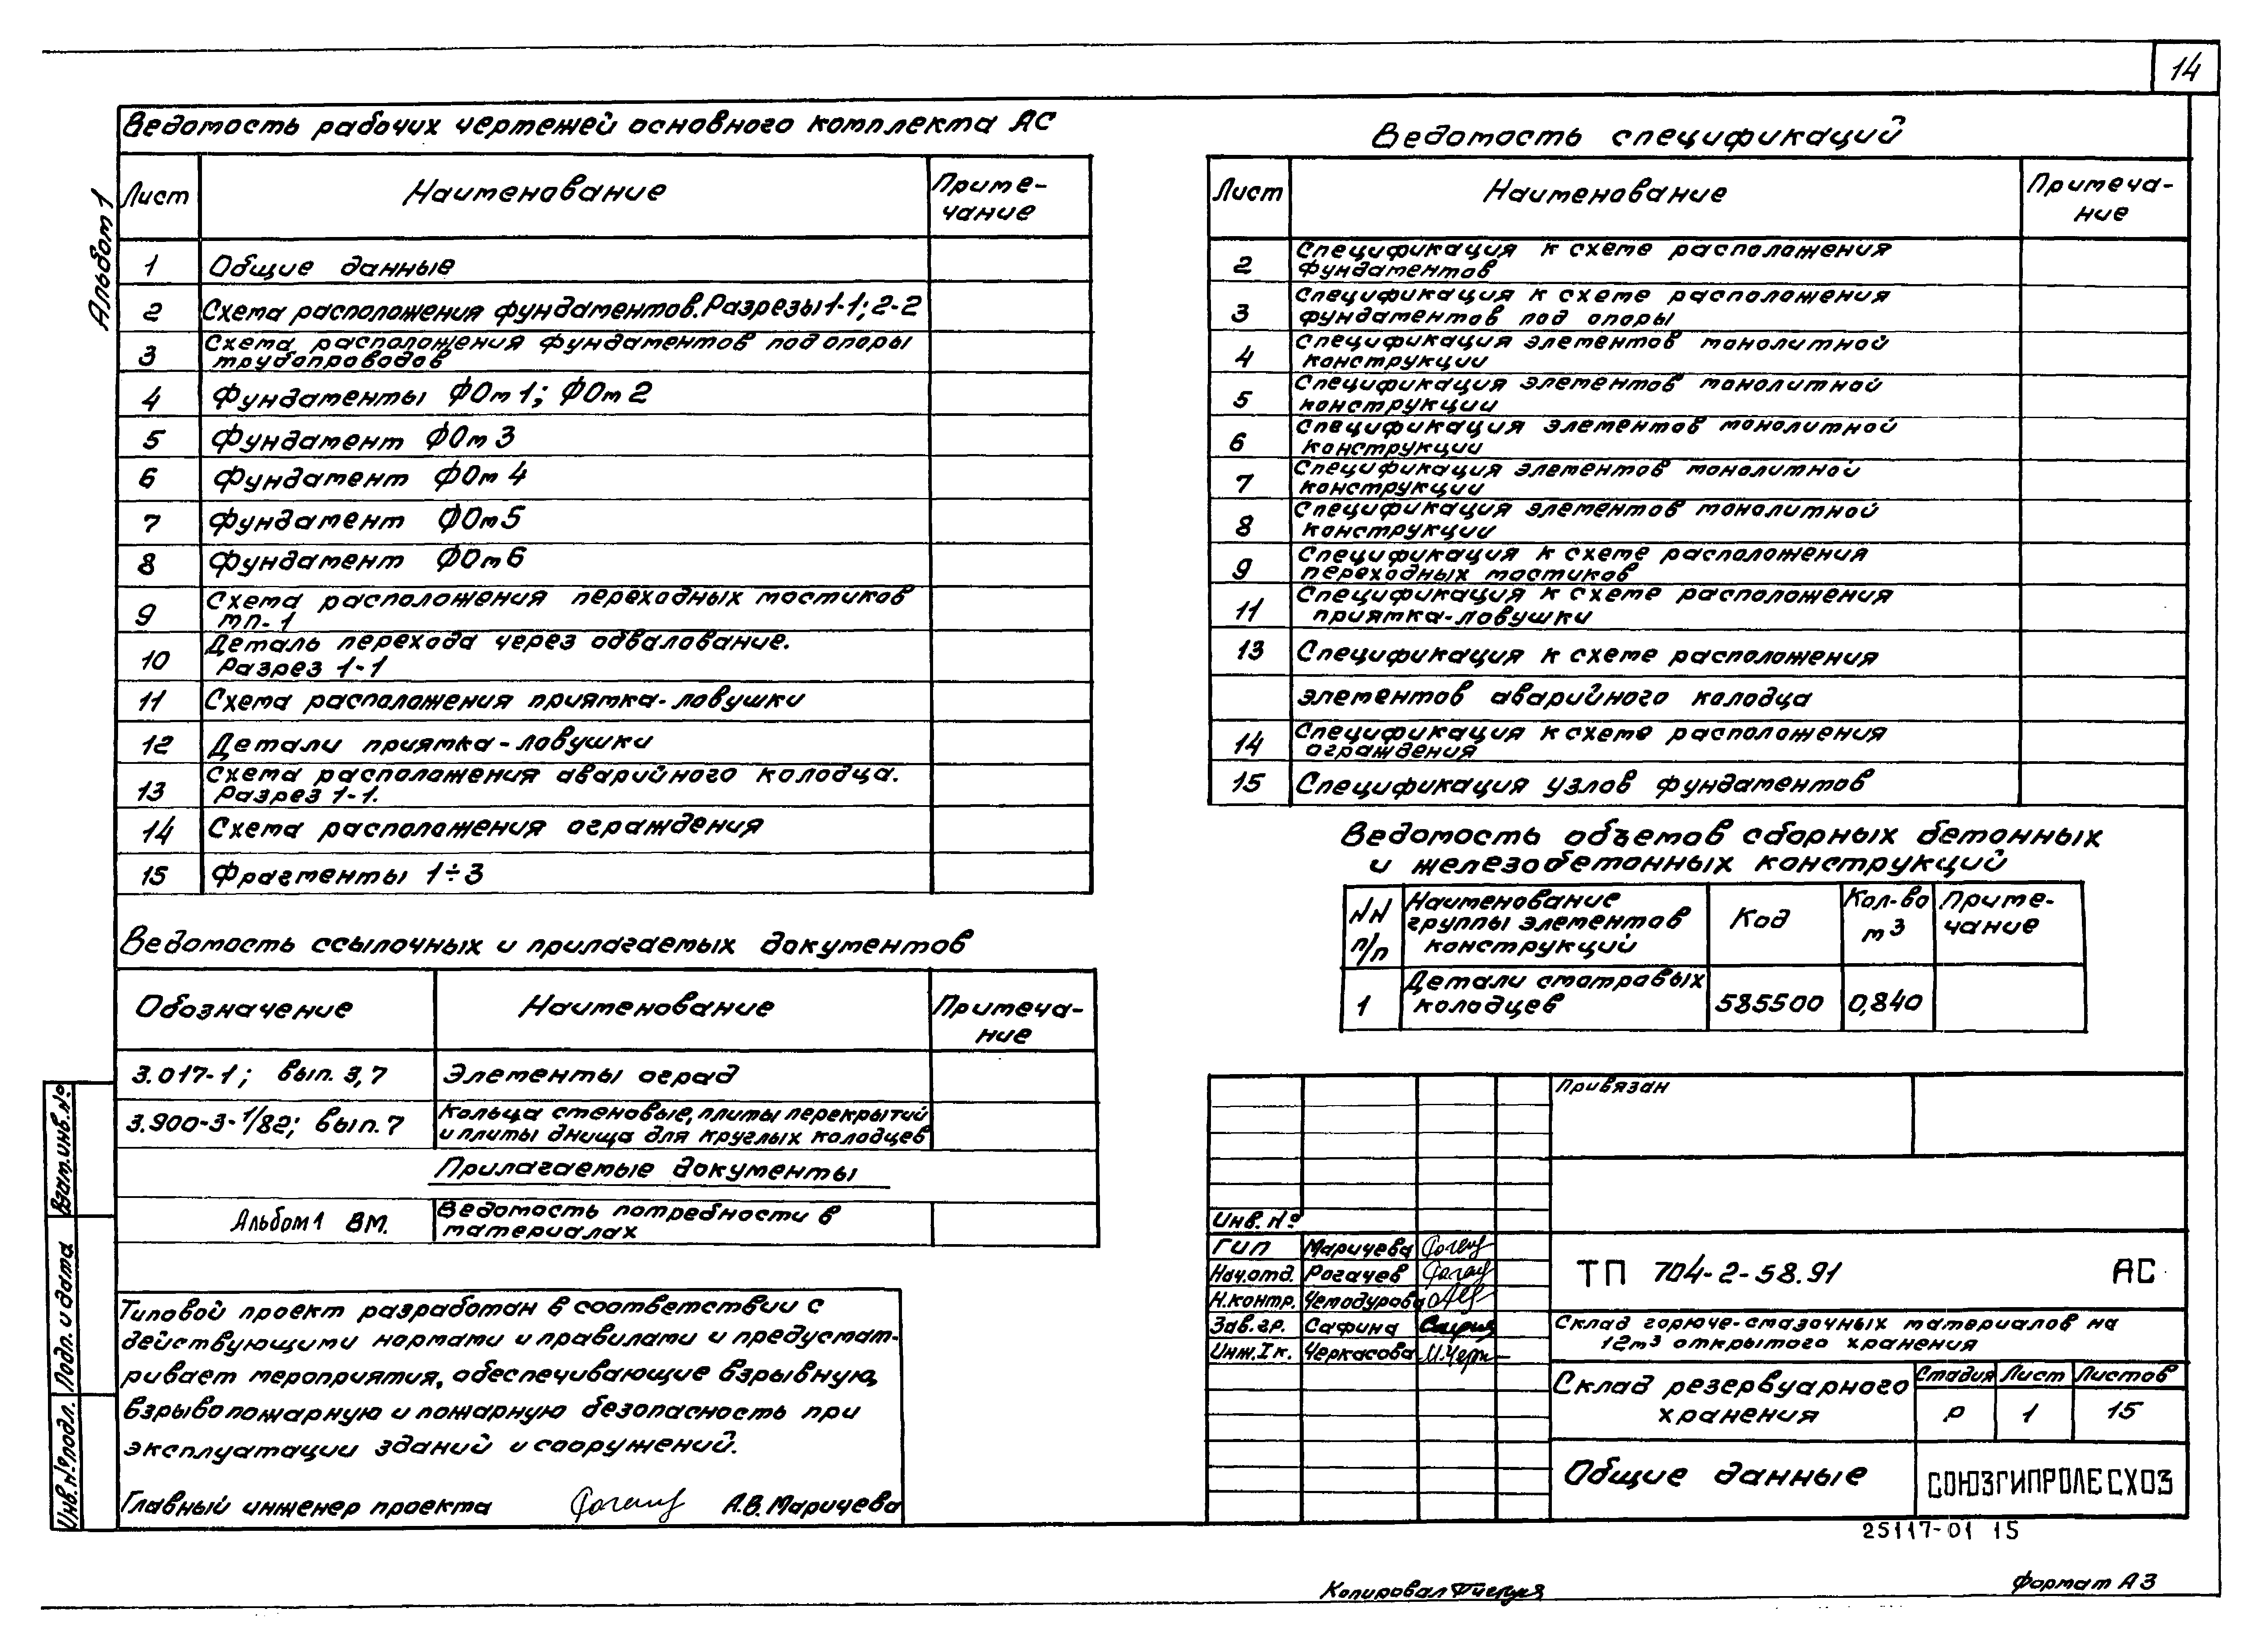 14
Альбом 1
Ведомость рабочих чертежей основного комплекта АС
Лист Наименование Приме-
чание
1 Общие данные
2 Схема расположения фундаментов. Разрезы 1-1; 2-2
3 Схема расположения фундаментов под опоры
трубопроводов
4 Фундаменты ФОm1; ФОm2
5 Фундамент ФОm3
6 Фундамент ФОm4
7 Фундамент ФОm5
8 Фундамент ФОm6
9 Схема расположения переходных мостиков
мп-1
10 Деталь перехода через обвалование.
Разрез 1-1
11 Схема расположения приямка-ловушки
12 Детали приямка-ловушки
13 Схема расположения аварийного колодца.
Разрез 1-1.
14 Схема расположения ограждения
15 Фрагменты 1÷3
Ведомость ссылочных и прилагаемых документов
Обозначение Наименование Примеча-
ние
3.017-1; вып. 3,7 Элементы оград
3.900-3-1/82; вып. 7 Кольца стеновые, плиты перекрытий
и плиты днища для круглых колодцев
Прилагаемые документы
Альбом 1 ВМ. Ведомость потребности в
материалах
Типовой проект разработан в соответствии с
действующими нормами и правилами и предусмат-
ривает мероприятия, обеспечивающие взрывную,
взрывопожарную и пожарную безопасность при
эксплуатации зданий и сооружений.
Главный инженер проекта А.В. Маричева
Взам.инв.№
Подп. и дата
Инв.№подл.
Ведомость спецификаций
Лист Наименование Примеча-
ние
2 Спецификация к схеме расположения
фундаментов
3 Спецификация к схеме расположения
фундаментов под опоры
4 Спецификация элементов монолитной
конструкции
5 Спецификация элементов монолитной
конструкции
6 Спецификация элементов монолитной
конструкции
7 Спецификация элементов монолитной
конструкции
8 Спецификация элементов монолитной
конструкции
9 Спецификация к схеме расположения
переходных мостиков
11 Спецификация к схеме расположения
приямка-ловушки
13 Спецификация к схеме расположения
элементов аварийного колодца
14 Спецификация к схеме расположения
ограждения
15 Спецификация узлов фундаментов
Ведомость объемов сборных бетонных
и железобетонных конструкций
NN
п/п Наименование
группы элементов
конструкций Код Кол-во
м3 Приме-
чание
1 Детали смотровых
колодцев 585500 0,840
Привязан
Инв. №
ГИП Маричева
Нач.отд. Рогачев
Н.контр. Чемодурова
Зав.гр. Сафина
Инж.Iк. Черкасова
ТП 704-2-58.91 АС
Склад горюче-смазочных материалов на
12м³ открытого хранения
Склад резервуарного
хранения
Стадия Лист Листов
Р 1 15
Общие данные
СОЮЗГИПРОЛЕСХОЗ
25117-01 15
Копировал
Формат А3